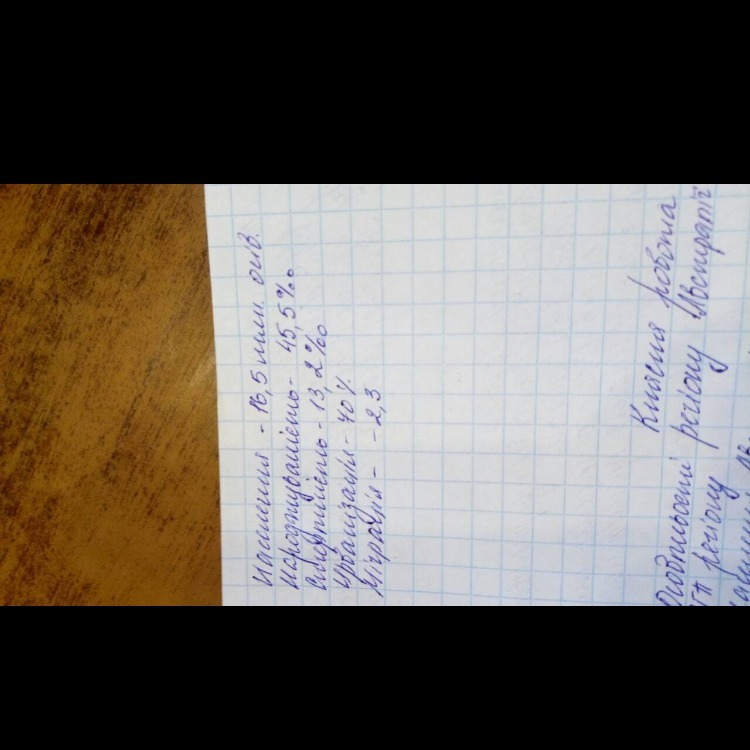 Населення - 16,5 млн. осіб.
Народжуваність - 45,5‰
Смертність - 13,2‰
Урбанізація - 40%
Міграція - -2,3
Класна робота
Особливості регіону Австралії
ГП регіону